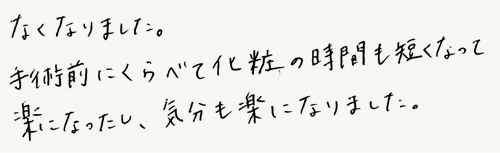 なくなりました。
手術前にくらべて化粧の時間も短くなって
楽になったし、気分も楽になりました。